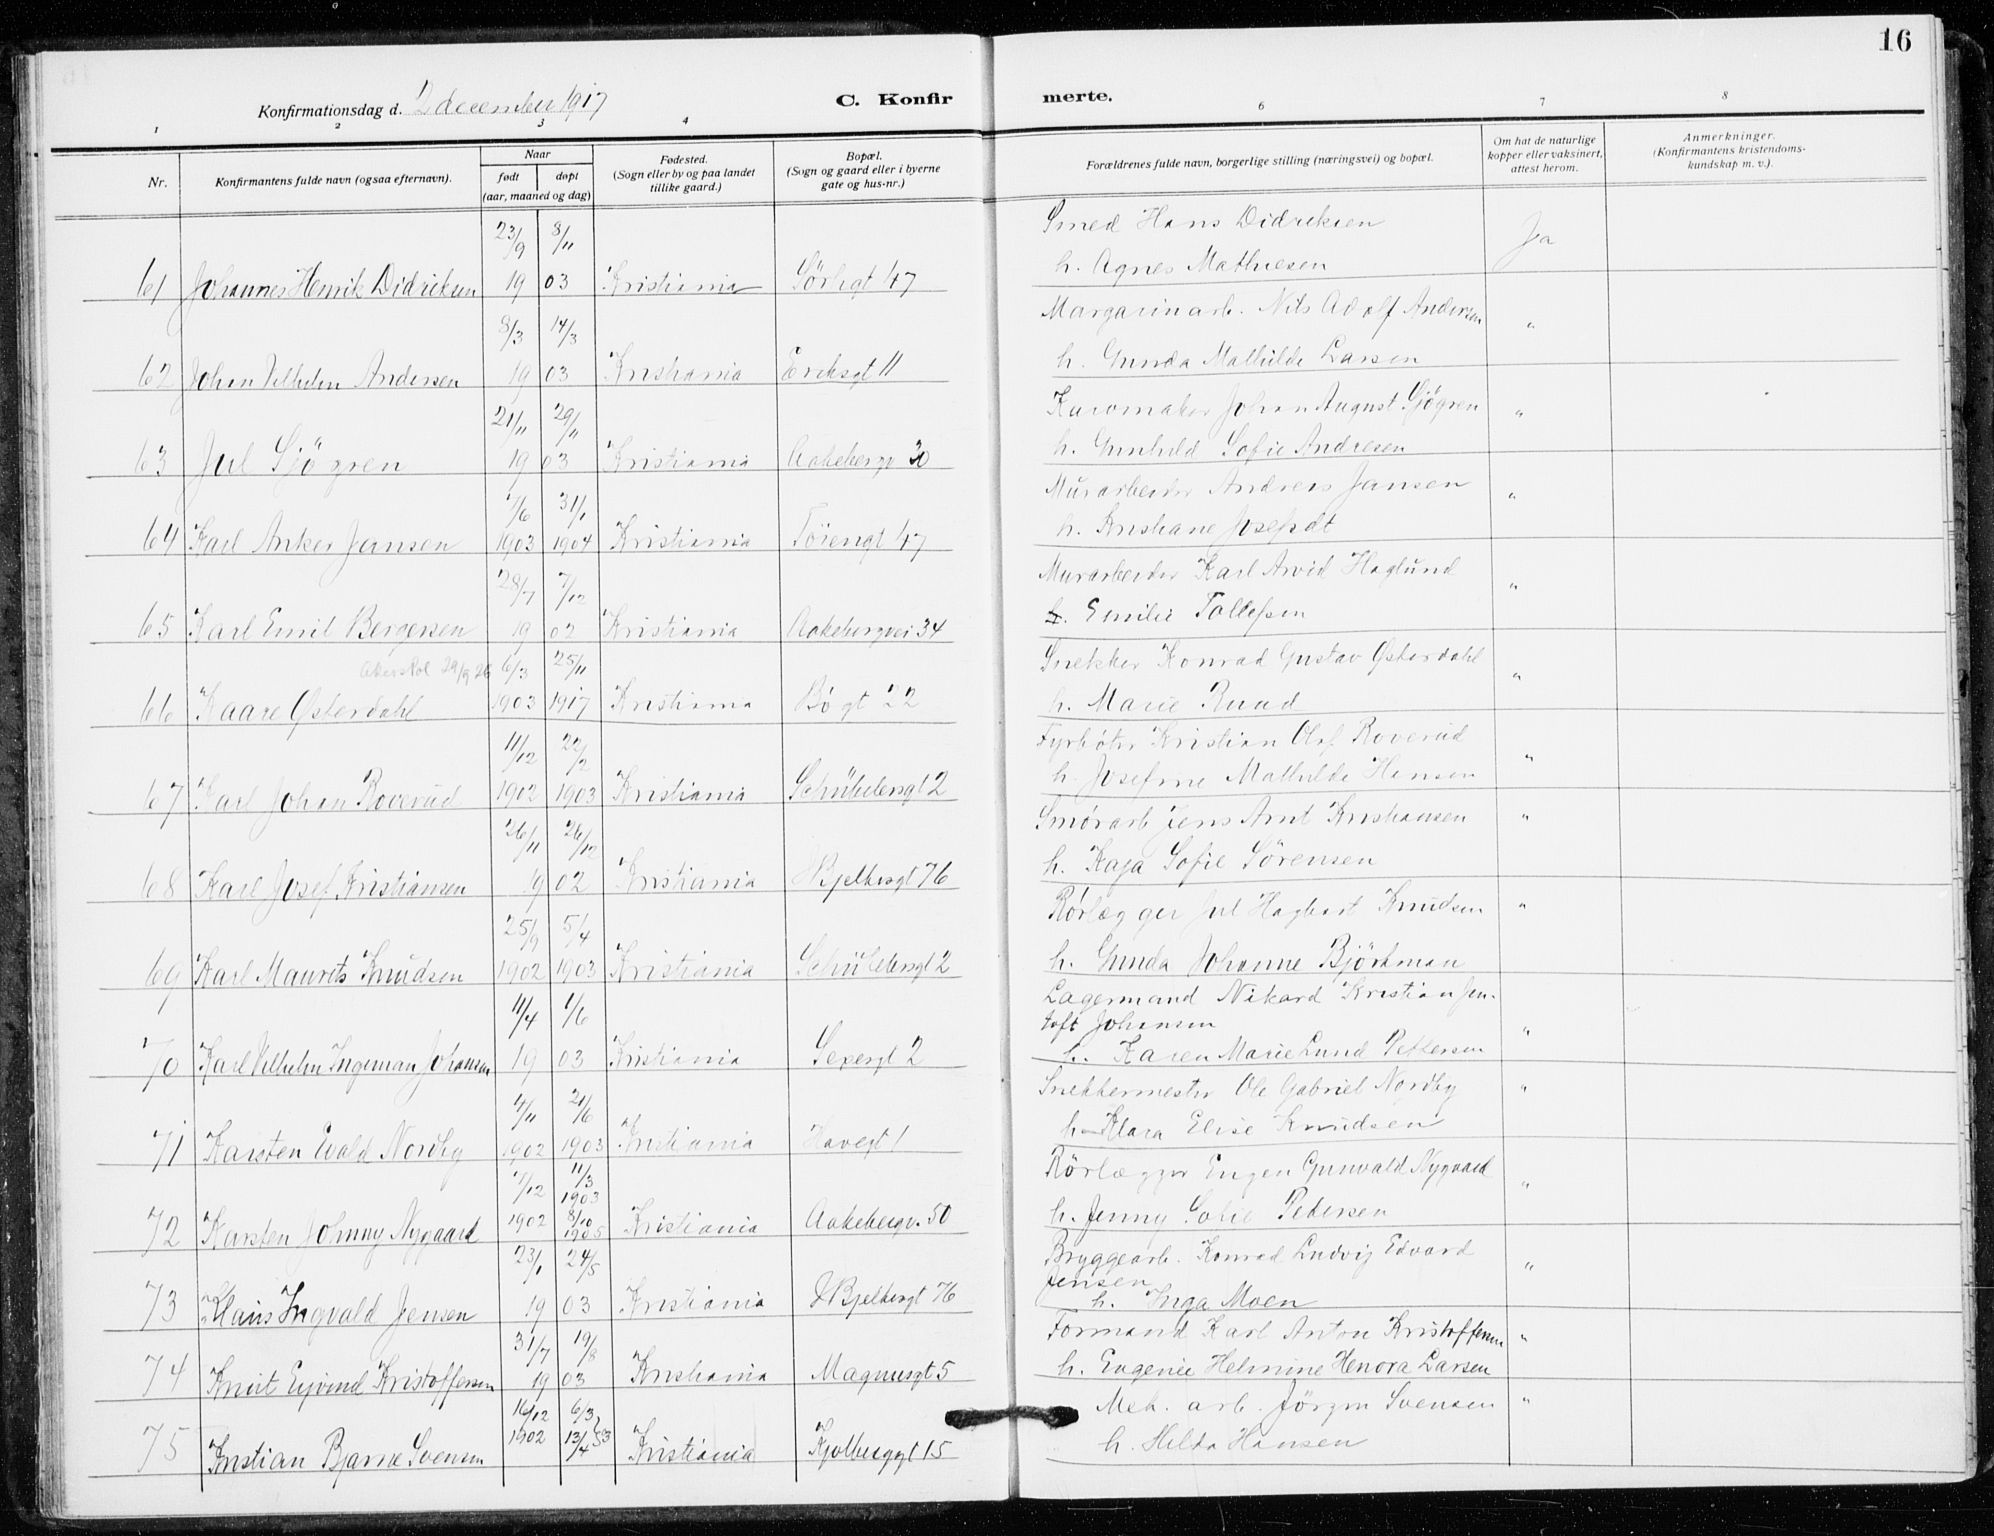 16
Konfirmationsdag d. 2 december 1917
C. Konfir merte.
1 2 3 4 6 7 8
Nr.
Konfirmantens fulde navn (ogsaa efternavn).
Naar
født døpt
(aar, maaned og dag)
Fødested.
(Sogn eller by og paa landet
tillike gaard.)
Bopæl.
(Sogn og gaard eller i byerne
gate og hus-nr.)
Forældrenes fulde navn, borgerlige stilling (næringsvei) og bopæl.
Om hat de naturlige
kopper eller vaksinert,
attest herom.
Anmerkninger.
(Konfirmantens kristendoms-
kundskap m. v.).
23/9 8/11 Smed Hans Didriksen Ja
61 Johannes Henrik Didriksen 19 03 Kristiania Sörligt 47 h. Agnes Mathiesen
8/3 14/3 Margarinarb. Nils Adolf Andersen "
62 Johan Vilhelm Andersen 19 03 Kristiania Eriksgt 11 h. Gunda Mathilde Larsen
21/11 29/11 Kurvmaker Johan August Sjögren "
63 Jul Sjögren 19 03 Kristiania Aakebergv 30 h. Gunhild Sofie Andresen
7/6 31/1 Murarbeider Andreas Jansen "
64 Karl Anker Jansen 1903 1904 Kristiania Töiengt 47 h. Kristiane Josefsdt
28/7 7/12 Murarbeider Karl Arvid Haglund "
65 Karl Emil Bergersen 19 02 Kristiania Aakebergvei 34 h. Emilie Tollefsen
29/9 26 6/3 25/11 Snekker Konrad Gustav Østerdahl "
66 Kaare Østerdahl 1903 1917 Kristiania Bøgt 22 h. Marie Ruud
11/12 22/2 Fyrbøter Kristian Olaf Roverud "
67 Karl Johan Roverud 1902 1903 Kristiania Schübelersgt 2 h. Josefine Mathilde Hansen
26/11 26/12 Smørarb Jens Arnt Kristiansen "
68 Karl Josef Kristiansen 19 02 Kristiania Hjelbergt 76 h. Kaja Sofie Sørensen
25/9 5/4 Rørlægger Jul Hagbart Knudsen "
69 Karl Maurits Knudsen 1902 1903 Kristiania Schübelersgt 2 h. Gunda Johanne Björkman
11/4 1/6 Lagermand Nikard Kristian Jen-
toft Johansen "
70 Karl Vilhelm Ingeman Johansen 19 03 Kristiania Sexesgt 2 h. Karen Marie Lund Pettersen
4/11 21/6 Snekkermester Ole Gabriel Nordby "
71 Karsten Evald Nordby 1902 1903 Kristiania Havegt 1 h. Klara Elise Knudsen
7/12 11/3 1903 Rörlægger Eugen Gunvald Nygaard "
72 Karsten Johnny Nygaard 1902 8/10 1905 Kristiania Aakebergv. 50 h. Jenny Sofie Pedersen
23/1 24/5 Bryggearb. Konrad Ludvig Edvard
Jensen "
73 Klaus Ingvald Jensen 19 03 Kristiania 76 h. Inga Moen
31/7 19/8 Formand Karl Anton Kristoffersen "
74 Knut Eyvind Kristoffersen 19 03 Kristiania Magnusgt 5 h. Eugenie Helmine Henora Larsen
16/12 6/3 Mek. arb. Jörgen Svensen "
75 Kristian Bjarne Svensen 1902 13/4 Kristiania Kjølberggt 15 h. Hilda Hansen